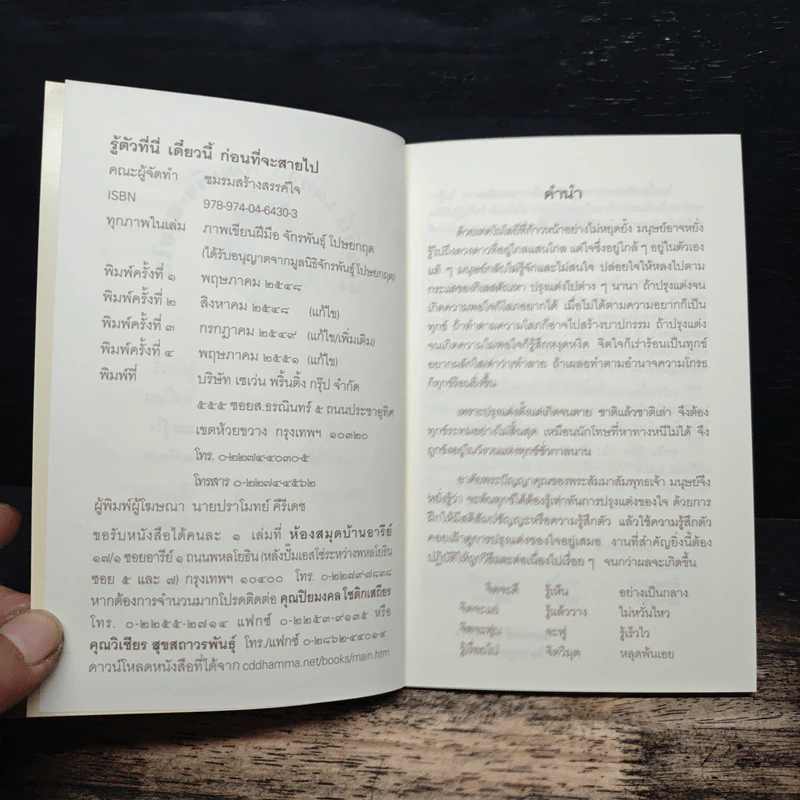 รู้ตัวที่นี่ เดี๋ยวนี้ ก่อนที่จะสายไป
คณะผู้จัดทำ ชมรมสร้างสรรค์ใจ
ISBN 978-974-04-6430-3
ทุกภาพในเล่ม ภาพเขียนฝีมือ จักรพันธุ์ โปษยกฤต
(ได้รับอนุญาตจากมูลนิธิจักรพันธุ์ โปษยกฤต)
พิมพ์ครั้งที่ ๑ พฤษภาคม ๒๕๔๘
พิมพ์ครั้งที่ ๒ สิงหาคม ๒๕๔๘ (แก้ไข)
พิมพ์ครั้งที่ ๓ กรกฎาคม ๒๕๔๙ (แก้ไข/เพิ่มเติม)
พิมพ์ครั้งที่ ๔ พฤษภาคม ๒๕๕๑ (แก้ไข)
พิมพ์ที่ บริษัท เซเว่น พริ้นติ้ง กรุ๊ป จำกัด
๕๕๕ ซอยส.ธรณินทร์ ๕ ถนนประชาอุทิศ
เขตห้วยขวาง กรุงเทพฯ ๑๐๓๒๐
โทร. ๐-๒๒๗๔-๔๐๓๐-๕
โทรสาร ๐-๒๒๗๔-๔๕๖๒
ผู้พิมพ์ผู้โฆษณา นายปราโมทย์ คีรีเดช
ขอรับหนังสือได้คนละ ๑ เล่มที่ ห้องสมุดบ้านอารีย์
๑๗/๑ ซอยอารีย์ ๑ ถนนพหลโยธิน (หลังปั๊มเอสโซ่ระหว่างพหลโยธิน
ซอย ๕ และ ๗) กรุงเทพฯ ๑๐๔๐๐ โทร. ๐-๒๒๗๙๗๘๓๘
หากต้องการจำนวนมากโปรดติดต่อ คุณปิยมงคล โชติกเสถียร
โทร. ๐-๒๒๕๕-๒๗๑๔ แฟกซ์ ๐-๒๒๕๓-๙๑๓๕ หรือ
คุณวิเชียร สุขสถาวรพันธุ์ โทร./แฟกซ์ ๐-๒๘๖๒-๔๔๐๑-๔
ดาวน์โหลดหนังสือที่ได้จาก cddhamma.net/books/main.htm
คำนำ
ด้วยเทคโนโลยีที่ก้าวหน้าอย่างไม่หยุดยั้ง มนุษย์อาจหยั่ง
รู้ไปถึงดวงดาวที่อยู่ไกลแสนไกล แต่ใจซึ่งอยู่ใกล้ ๆ อยู่ในตัวเอง
แท้ ๆ มนุษย์กลับไม่รู้จักและไม่สนใจ ปล่อยใจให้หลงไปตาม
กระแสของกิเลสตัณหา ปรุงแต่งไปต่าง ๆ นานา ถ้าปรุงแต่งจน
เกิดความพอใจก็โลภอยากได้ เมื่อไม่ได้ตามความอยากก็เป็น
ทุกข์ ถ้าทำตามความโลภก็อาจไปสร้างบาปกรรม ถ้าปรุงแต่ง
จนเกิดความไม่พอใจก็รู้สึกหงุดหงิด จิตใจก็เร่าร้อนเป็นทุกข์
อยากผลักไสด่าว่าทำลาย ถ้าเผลอทำตามอำนาจความโกรธ
ก็ทุกข์ร้อนยิ่งขึ้น
เพราะปรุงแต่งตั้งแต่เกิดจนตาย ชาติแล้วชาติเล่า จึงต้อง
ทุกข์ระทมอย่างไม่สิ้นสุด เหมือนนักโทษที่หาทางหนีไม่ได้ จึง
ถูกขังอยู่ในวังวนแห่งทุกข์ชั่วกาลนาน
อาศัยพระปัญญาคุณของพระสัมมาสัมพุทธเจ้า มนุษย์จึง
หยั่งรู้ว่า จะพ้นทุกข์ได้ต้องรู้เท่าทันการปรุงแต่งของใจ ด้วยการ
ฝึกให้มีสติสัมปชัญญะหรือความรู้สึกตัว แล้วใช้ความรู้สึกตัว
คอยเฝ้าดูการปรุงแต่งของใจอยู่เสมอ งานที่สำคัญยิ่งนี้ต้อง
ปฏิบัติให้ถูกวิธีและต่อเนื่องไปเรื่อย ๆ จนกว่าผลจะเกิดขึ้น
จิตจะดี รู้เห็น อย่างเป็นกลาง
จิตจะแย่ รู้แล้ววาง ไม่หวั่นไหว
จิตจะฟุ้ง จะฟู รู้เร็วไว
รู้เรื่อยไป จิตวิมุต หลุดพ้นเอย